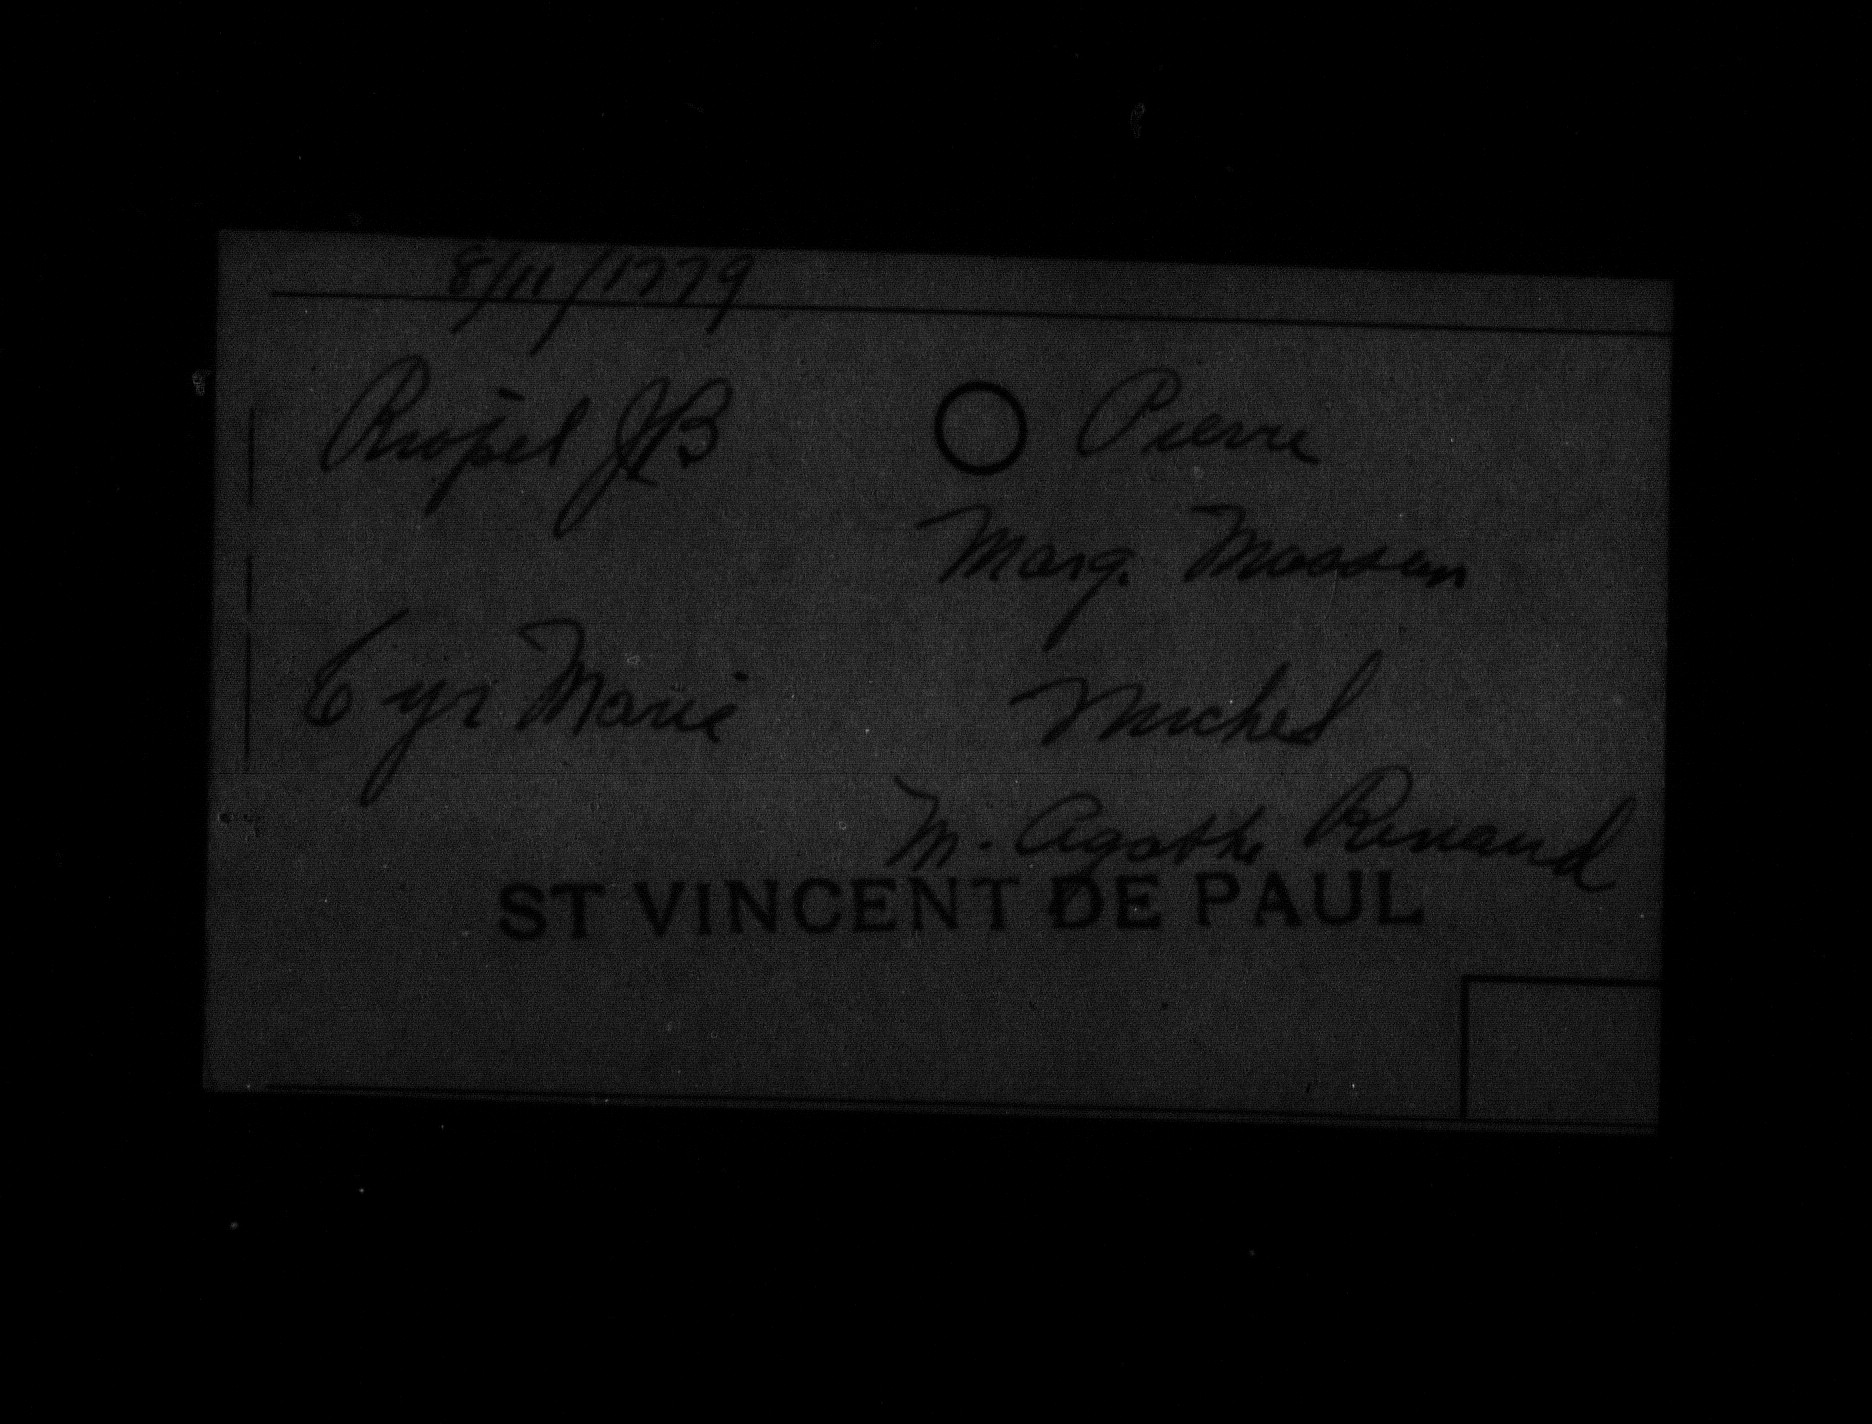 8/11/1779
Riopel JB Pierre
Marg. Masson
Cyr Marie Michel
M. Agathe Renaud
ST VINCENT DE PAUL